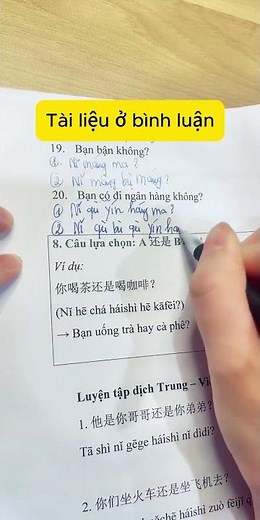 Tài liệu ở bình luận
19. Bạn bận không?
①. Nǐ máng ma?
② Nǐ máng bù máng?
20. Bạn có đi ngân hàng không?
① Nǐ qù yín háng ma?
② Nǐ qù bù qù yín há
8. Câu lựa chọn: A 还是 B
Ví dụ:
你喝茶还是喝咖啡？
(Nǐ hē chá háishì hē kāfēi?)
→ Bạn uống trà hay cà phê?
Luyện tập dịch Trung – Vi
1. 他是你哥哥还是你弟弟？
Tā shì nǐ gēge háishì nǐ dìdi?
2. 你们坐火车还是坐飞机去？
háishì zuò fēijī q